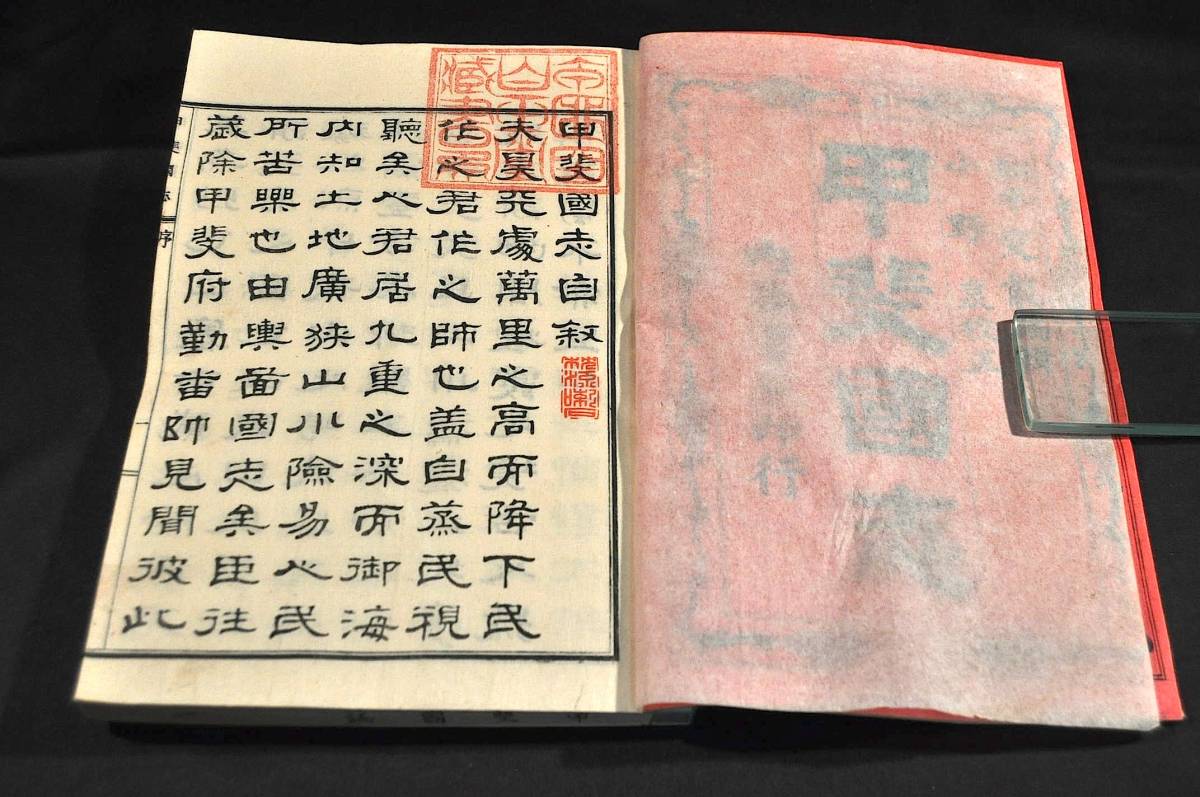 甲斐國志
甲斐國志自敘
夫昊天處萬里之高而降下民
作之君作之師也盖自蒸民視
聽矣之君居九重之深而御海
内知土地廣狹山川險易之民
所苦樂也由輿啚國志矣臣往
歲除甲斐府勤番帥見聞彼此
甲斐國志
序